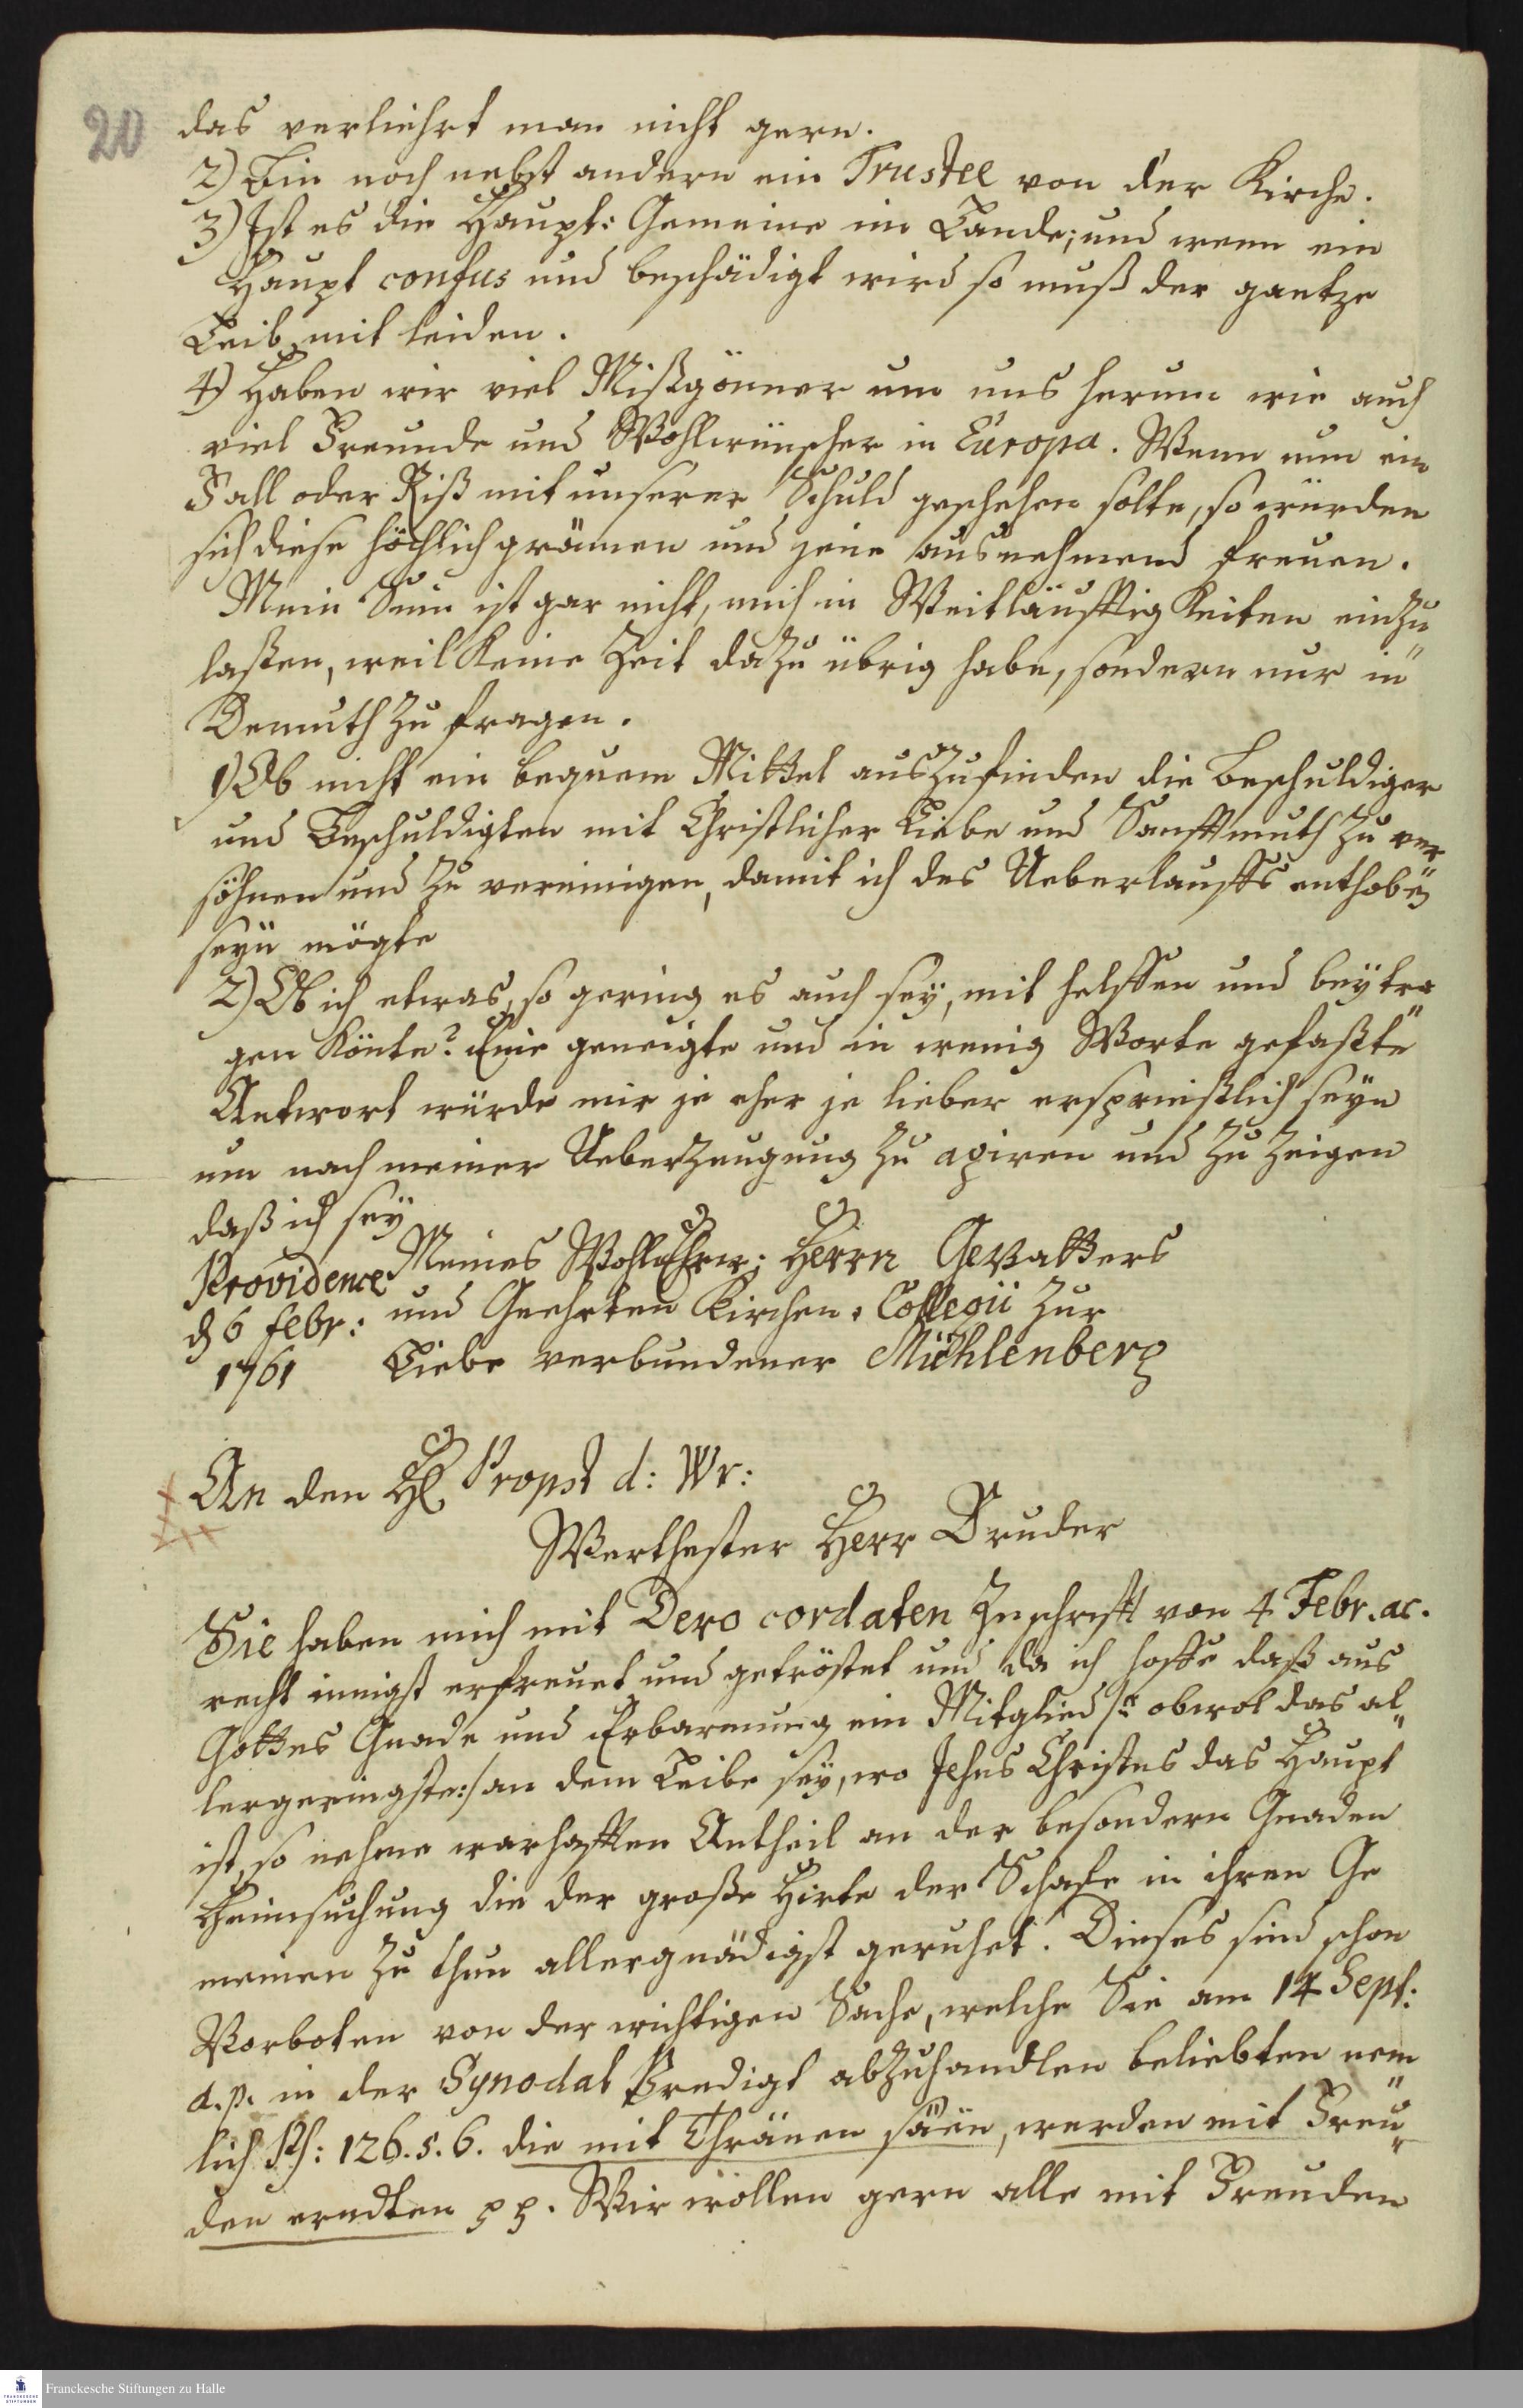 20
das verliehrt man nicht gern.
2) Bin noch nebst andern ein Trustee von der Kirche.
3) Ist es die Haupt: Gemeine im Lande; und wenn ein
Haupt confus und beschädigt wird so muß der gantze
Leib mit leiden.
4) Haben wir viel Mißgönner um uns herum wie auch
viel Freunde und Wohlwünscher in Europa. Wenn nun ein
Fall oder Riß mit unserer Schuld geschehen solte, so würden
sich diese höchlich grämen und jene ausnehmend freuen.
Mein Sinn ist gar nicht, mich in Weitläufftigkeiten einzu
laßen, weil keine Zeit dazu übrig habe, sondern nur in"
Demuth zu fragen.
1) Ob nicht ein bequem Mittel auszufinden die Beschuldiger
und Beschuldigten mit Christlicher Liebe und Sanfftmuth zu ver
söhnen und zu vereinigen, damit ich des Ueberlauffs enthoben
seyn mögte
2) Ob ich etwas, so gering es auch sey, mit helffen und beytra
gen könte? Eine geneigte und in wenig Worte gefaßte"
Antwort würde mir je eher je lieber ersprießlich seyn
um nach meiner Ueberzeugung zu agiren und zu zeigen
daß ich sey
Providence Meines WohlEhrw: Herrn Gevatters
d 6 febr: und Geehrten Kirchen: Collegii zur
1761 Liebe verbundener Mühlenberg
An den H. Propst d: Wr:
Werthester Herr Bruder
Sie haben mich mit Dero cordaten Zuschrifft von 4 Febr. ac.
recht innigst erfreuet und getröstet und da ich hoffe daß aus
Gottes Gnade und Erbarmung ein Mitglied /: obwol das al"
lergeringste:/ an dem Leibe sey, wo Jesus Christus das Haupt
ist, so nehme warhafften Antheil an der besondern Gnaden
Heimsuchung die der große Hirte der Schafe in ihren Ge
meinen zu thun allergnädigst geruhet. Dieses sind schon
Vorboten von der wichtigen Sache, welche Sie am 14 Sept:
a.p. in der Synodal Predigt abzuhandlen beliebten nem"
lich Ps: 126.5.6. die mit Thränen säen, werden mit Freu"
den erndten pp. Wir wollen gern alle mit Freuden
FRANCKESCHE STIFTUNGEN
Franckesche Stiftungen zu Halle